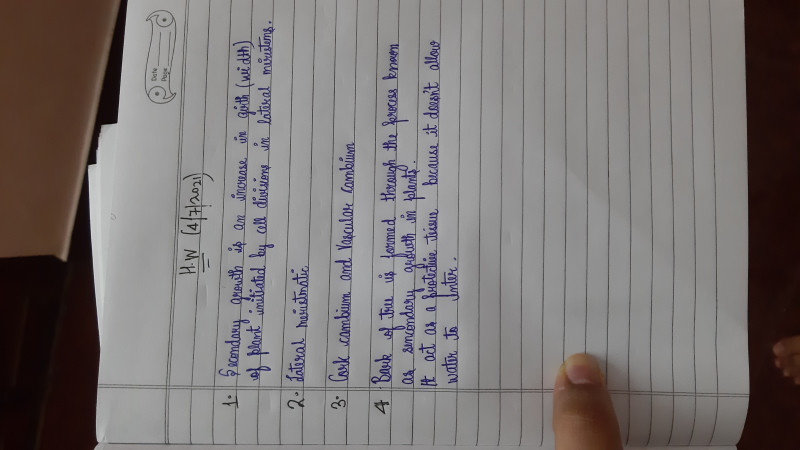 Date
Page
H.W (4/7/2021)
1. Secondary growth is an increase in girth (width)
of plant initiated by cell divisions in lateral meristems.
2. Lateral meristmatic
3. Cork cambium and Vascular cambium
4. Bark of tree is formed through the process known
as sencondary growth in plants.
It act as a protective tissue because it doesn't allow
water to Inter.